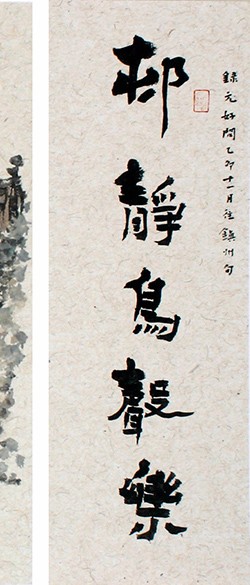 邨靜鳥聲樂
錄元好問乙卯十一月往鎮州句